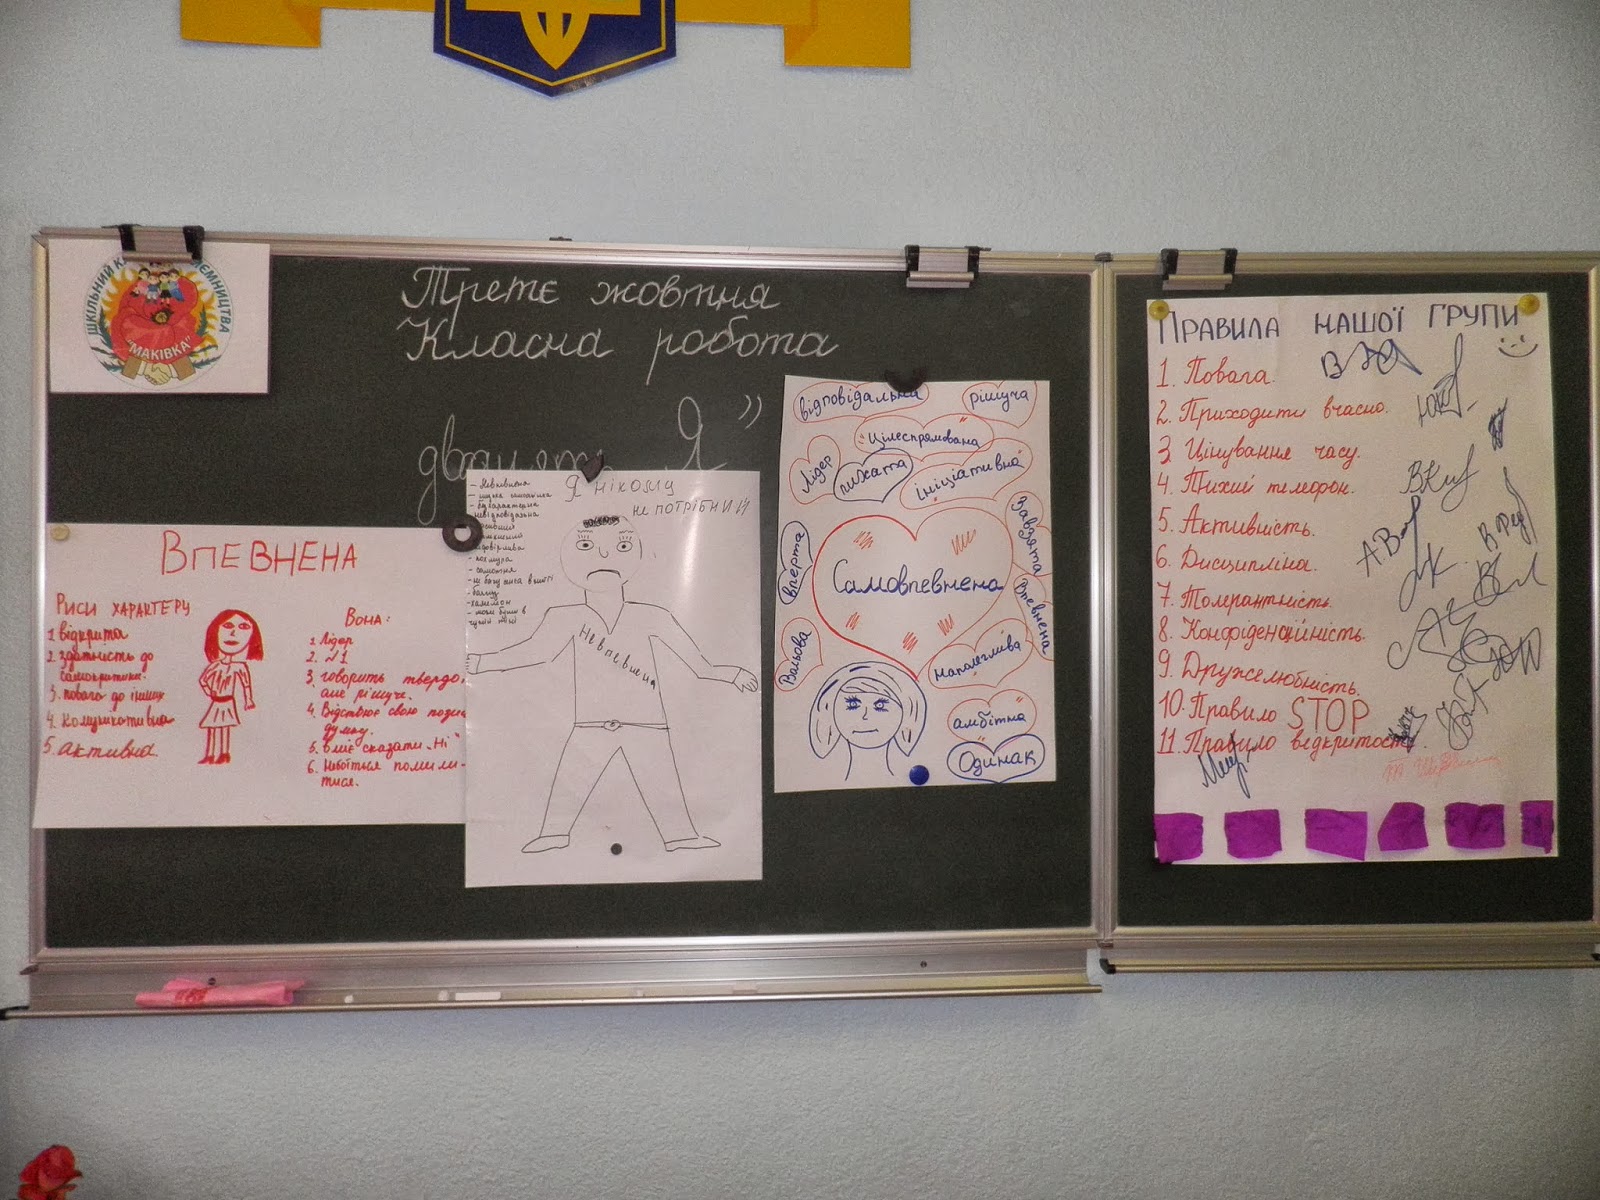 ШКІЛЬНИЙ
"МАКІВКА"
Третє жовтня
Класна робота
Я"
ВПЕВНЕНА
РИСИ ХАРАКТЕРУ
1. відкрита
2. здатність до
самокритики.
3. повага до інших
4. комунікативна
5. активна
ВОНА:
1. Лідер
2. №1
3. говорить твердо,
але рішуче.
4. Відстоює свою
думку.
5. вміє сказати „Ні"
6. Небоїться помили-
тися.
Я нікому
не потрібний
- Невпевнена
- безхарактерна
- невідповідальна
- самотня
Невпевнена
відповідальна
рішуча
Цілеспрямована
Лідер
пихата
ініціативна
Завзята
вперта
Самовпевнена
Впевнена
Вольова
наполеглива
амбітна
Одинак
ПРАВИЛА НАШОЇ ГРУПИ
1. Повага.
2. Приходити вчасно.
3. Цінування часу.
4. Тихий телефон.
5. Активність.
6. Дисципліна.
7. Толерантність.
8. Конфіденційність.
9. Дружелюбність.
10. Правило STOP
11. Правило відкритості.